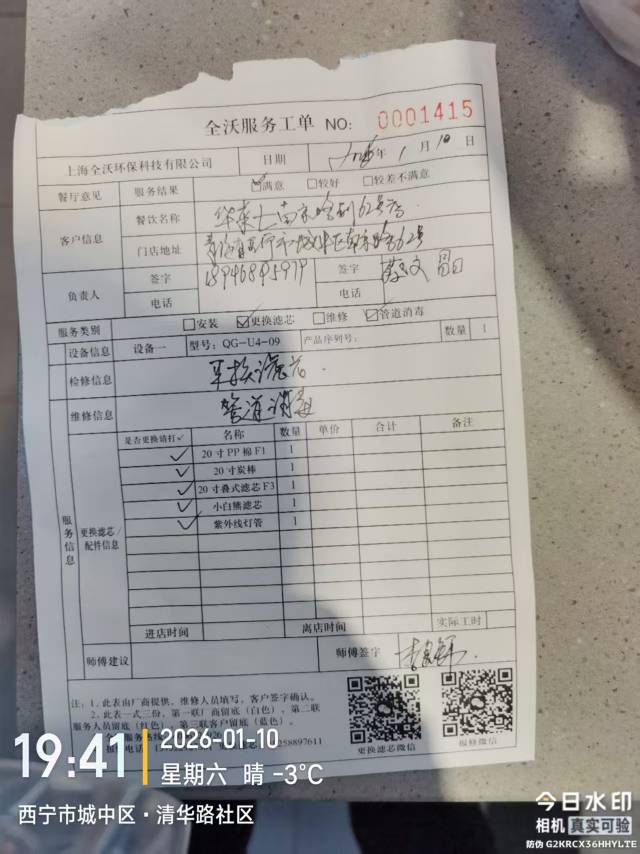 全沃服务工单 NO: 0001415
上海全沃环保科技有限公司 日期 2026年 1 月 10 日
餐厅意见 服务结果 ☑满意 □较好 □较差不满意
客户信息 餐饮名称 华莱士南京路62号店
门店地址 城中区南京路62号
负责人 签字 18946895979 签字
电话 电话
服务类别 □安装 ☑更换滤芯 □维修 ☑管道消毒
设备信息 设备一 型号: QG-U4-09 产品序列号: 数量 1
检修信息 更换滤芯.
维修信息 管道消毒
服务信息 更换滤芯/配件信息 是否更换请打✓ 名称 数量 单价 合计 备注
✓ 20寸PP棉F1 1
✓ 20寸炭棒 1
✓ 20寸叠式滤芯F3 1
✓ 小白熊滤芯 1
✓ 紫外线灯管 1
进店时间 离店时间 实际工时
师傅建议 师傅签字
注:1.此表由厂商提供,维修人员填写,客户签字确认。
2.此表一式三份,第一联厂商留底(白色),第二联
服务人员留底(红色),第三联客户留底(蓝色)。
258897611
更换滤芯微信 报修微信
19:41 2026-01-10
星期六 晴 -3℃
西宁市城中区·清华路社区
今日水印
相机 真实可验
防伪 G2KRCX36HHYLTE